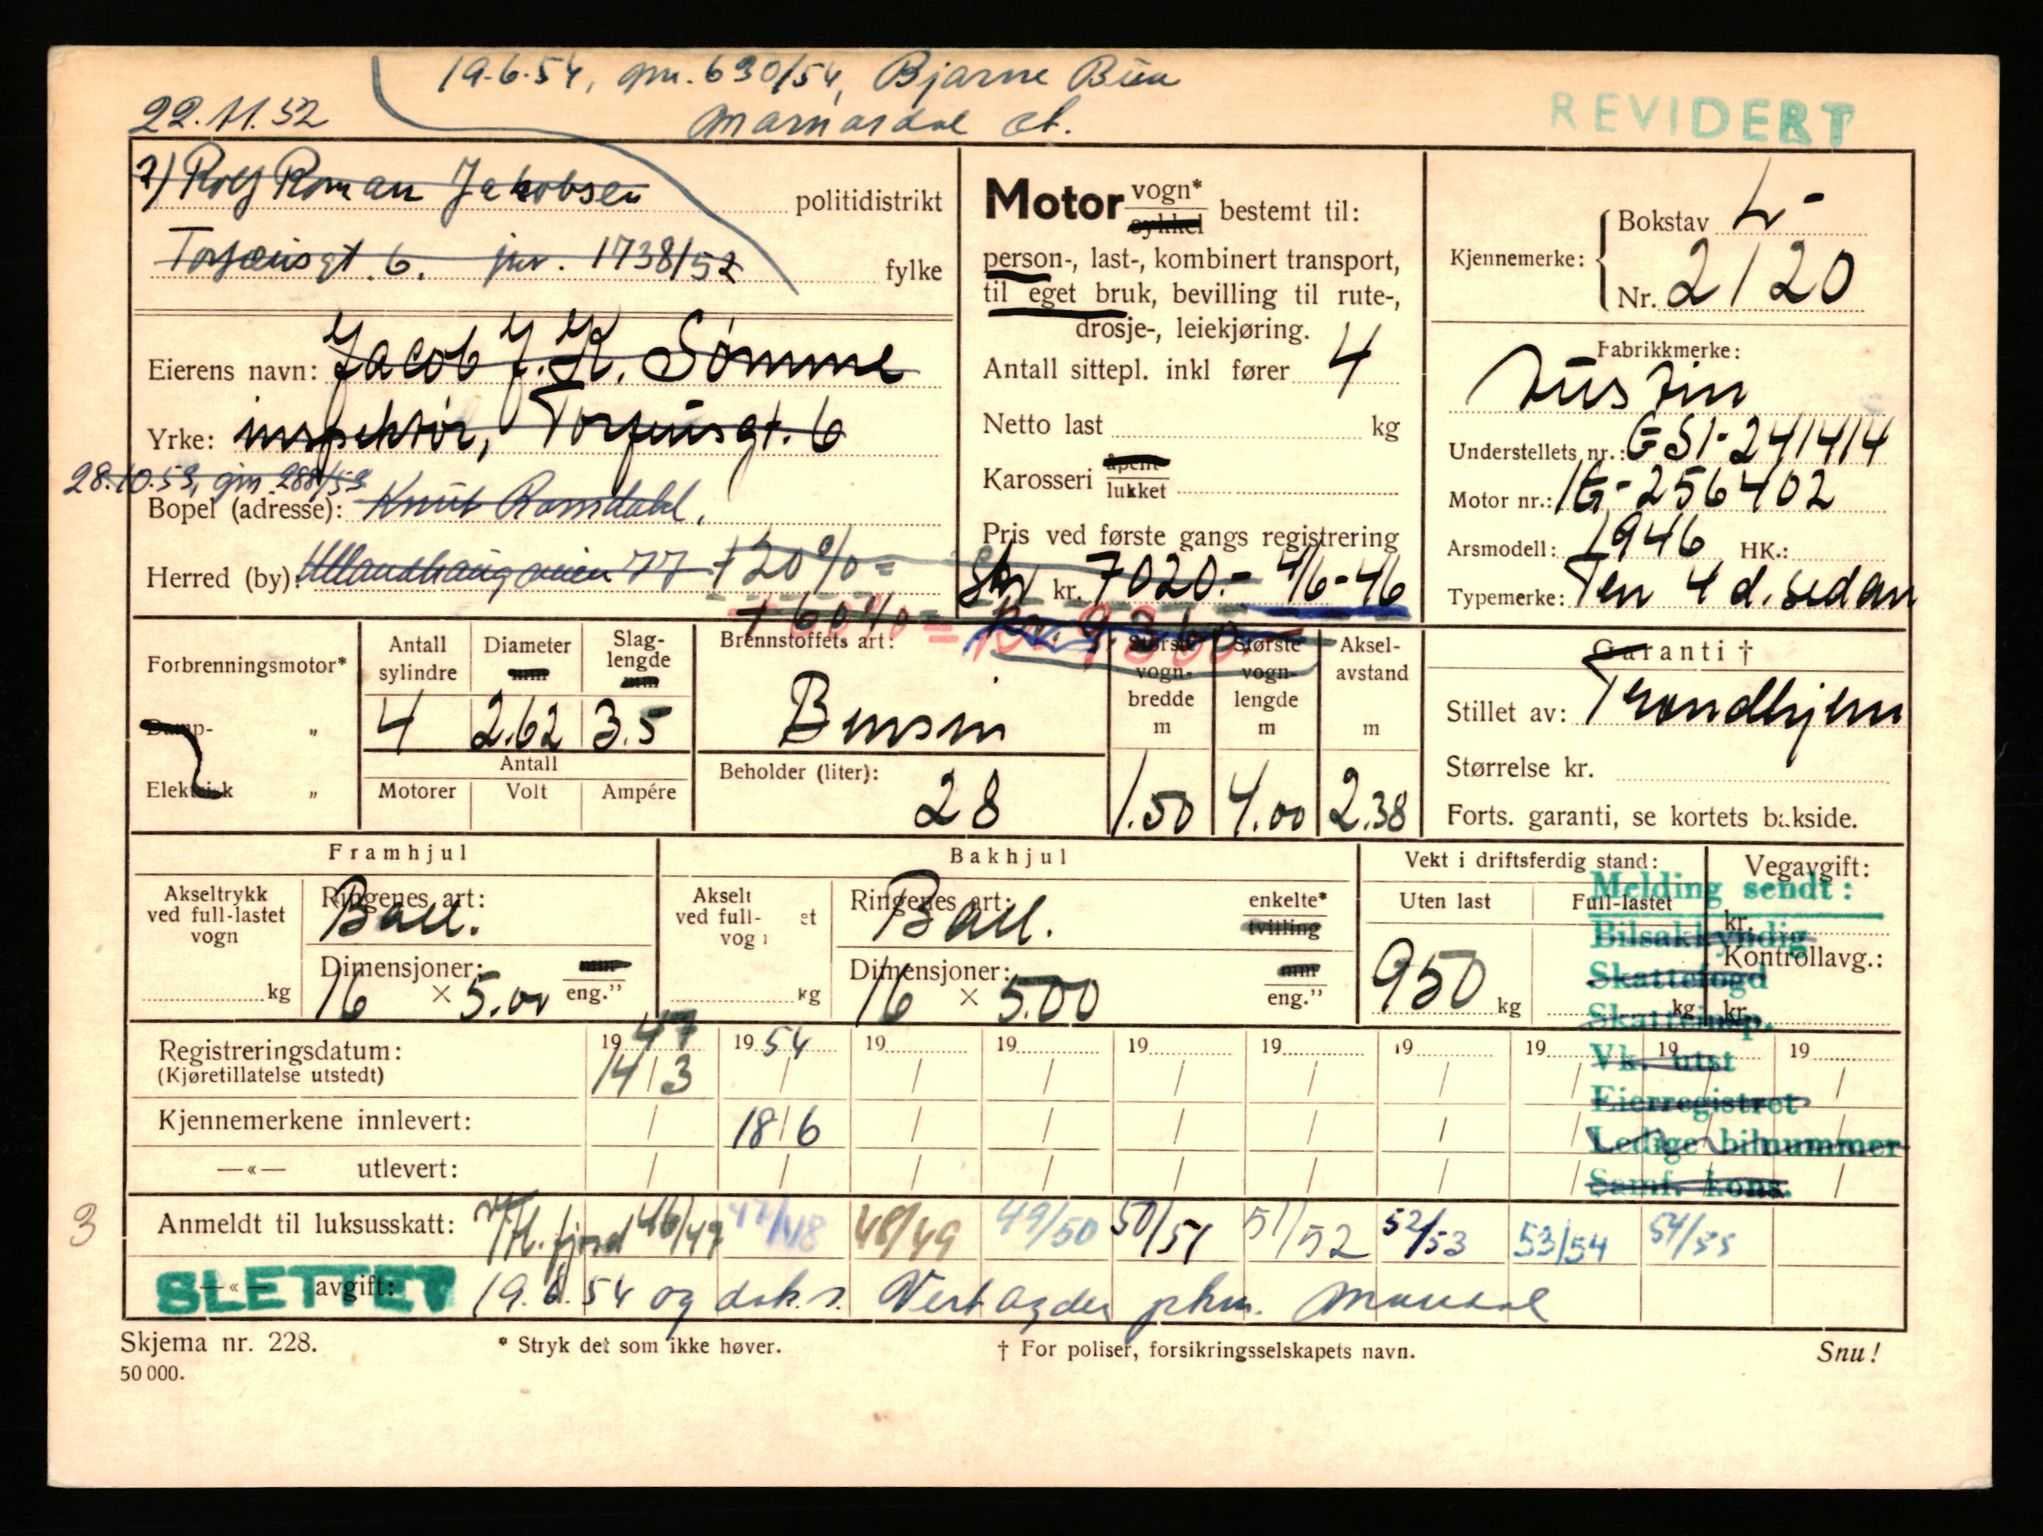 19.6.54, gm. 630/54, Bjarne Bue
22.11.52
Marnardal st.
REVIDERT
2) Rolf Roman Jakobsen politidistrikt
Torfæusgt. 6. jnr. 1738/52 fylke
Eierens navn: Jacob J. K. Sømme
Yrke: inspektør, Torfeusgt. 6
28.10.53, gm 288/53
Bopel (adresse): Knut Ramsdahl.
Herred (by): Ullandhaugveien 77 + 20% =
+ 60% = kr. 9.360.-
Motor vogn* sykkel bestemt til:
person-, last-, kombinert transport,
til eget bruk, bevilling til rute-,
drosje-, leiekjøring.
Antall sittepl. inkl fører 4
Netto last kg
Karosseri åpent lukket
Pris ved første gangs registrering
kr. 7020.- 4/6-46
Kjennemerke: Bokstav L-
Nr. 2120
Fabrikkmerke:
Austin
Understellets nr.: GS1-241414
Motor nr.: 1G-256402
Arsmodell: 1946 HK.:
Typemerke: Ten 4 d. sedan
Forbrenningsmotor*
Damp- „
Elektrisk „
Antall sylindre
4
Diameter mm
2.62
Slaglengde mm
3.5
Antall
Motorer Volt Ampére
Brennstoffets art:
Bensin
Beholder (liter):
28
Største vogn-bredde m
1.50
Største vogn-lengde m
4.00
Aksel-avstand m
2.38
Garanti †
Stillet av: Trondhjem
Størrelse kr.
Forts. garanti, se kortets bakside.
Framhjul
Akseltrykk ved full-lastet vogn
kg
Ringenes art:
Ball.
Dimensjoner: mm
16 × 5.00 eng.”
Bakhjul
Akselt
ved full- et
vog
kg
Ringenes art: enkelte* tvilling
Ball.
Dimensjoner: mm
16 × 5.00 eng.”
Vekt i driftsferdig stand:
Uten last Full-lastet
950 kg kg
Vegavgift:
kr.
Kontrollavg.:
kr.
Melding sendt:
Bilsakkyndig
Skattefogd
Skatteinsp.
Vk. utst
Eierregistret
Ledige bilnummer
Samf. kons.
Registreringsdatum: 19 47 19 54 19 19 19 19 19 19 19 19
(Kjøretillatelse utstedt) 14/3 / / / / / / / / /
Kjennemerkene innlevert: / 18/6 / / / / / / / /
—«— utlevert: / / / / / / / / / /
3
Anmeldt til luksusskatt: 46/47 47/48 48/49 49/50 50/51 51/52 52/53 53/54 54/55
—«— avgift: 19.6.54 og dok. s. Vest Agder pkm. Mandal
SLETTET
Skjema nr. 228. * Stryk det som ikke høver. † For poliser, forsikringsselskapets navn. Snu!
50 000.